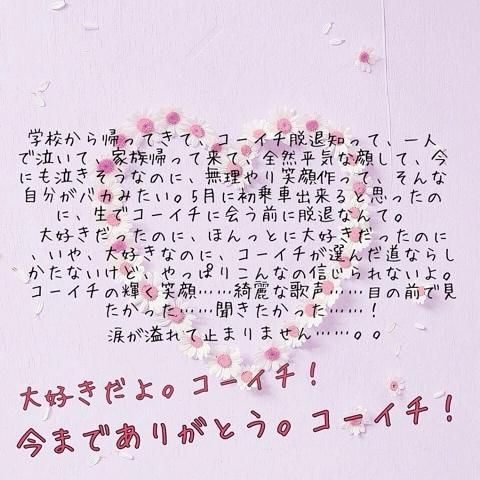 学校から帰ってきて、コーイチ脱退知って、一人
で泣いて、家族帰って来て、全然平気な顔して、今
にも泣きそうなのに、無理やり笑顔作って、そんな
自分がバカみたい。5月に初乗車出来ると思ったの
に、生でコーイチに会う前に脱退なんて。
大好きだったのに、ほんっとに大好きだったのに
、いや、大好きなのに、コーイチが選んだ道ならし
かたないけど、やっぱりこんなの信じられないよ。
コーイチの輝く笑顔……綺麗な歌声……目の前で見
たかった……聞きたかった……！
涙が溢れて止まりません……。。
大好きだよ。コーイチ！
今までありがとう。コーイチ！